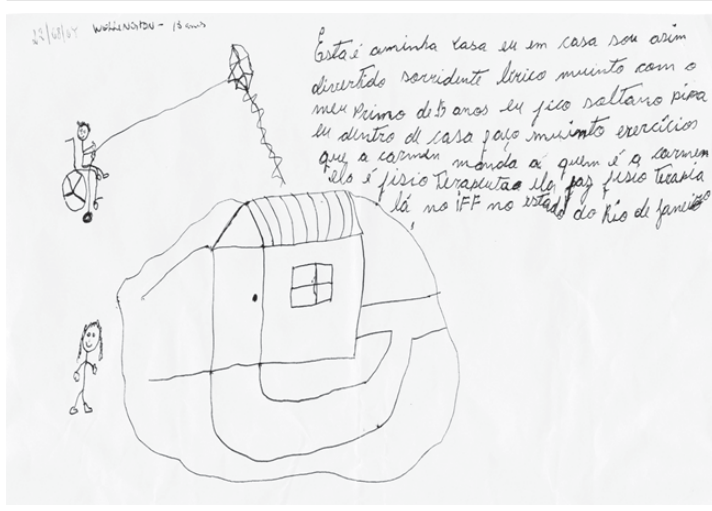 23/08/04 - 15 anos
Esta é aminha casa eu em casa sou asim
divertido sorridente lirico muinto com o
meu Primo de 5 anos eu fico saltano pipa
eu dentro de casa faço muinto exercícios
que a carmen manda a quem é a carmem
ela é fisio Terapeutao ela faz fisio Terapia
lá no iFF no estado do Rio de janeiro